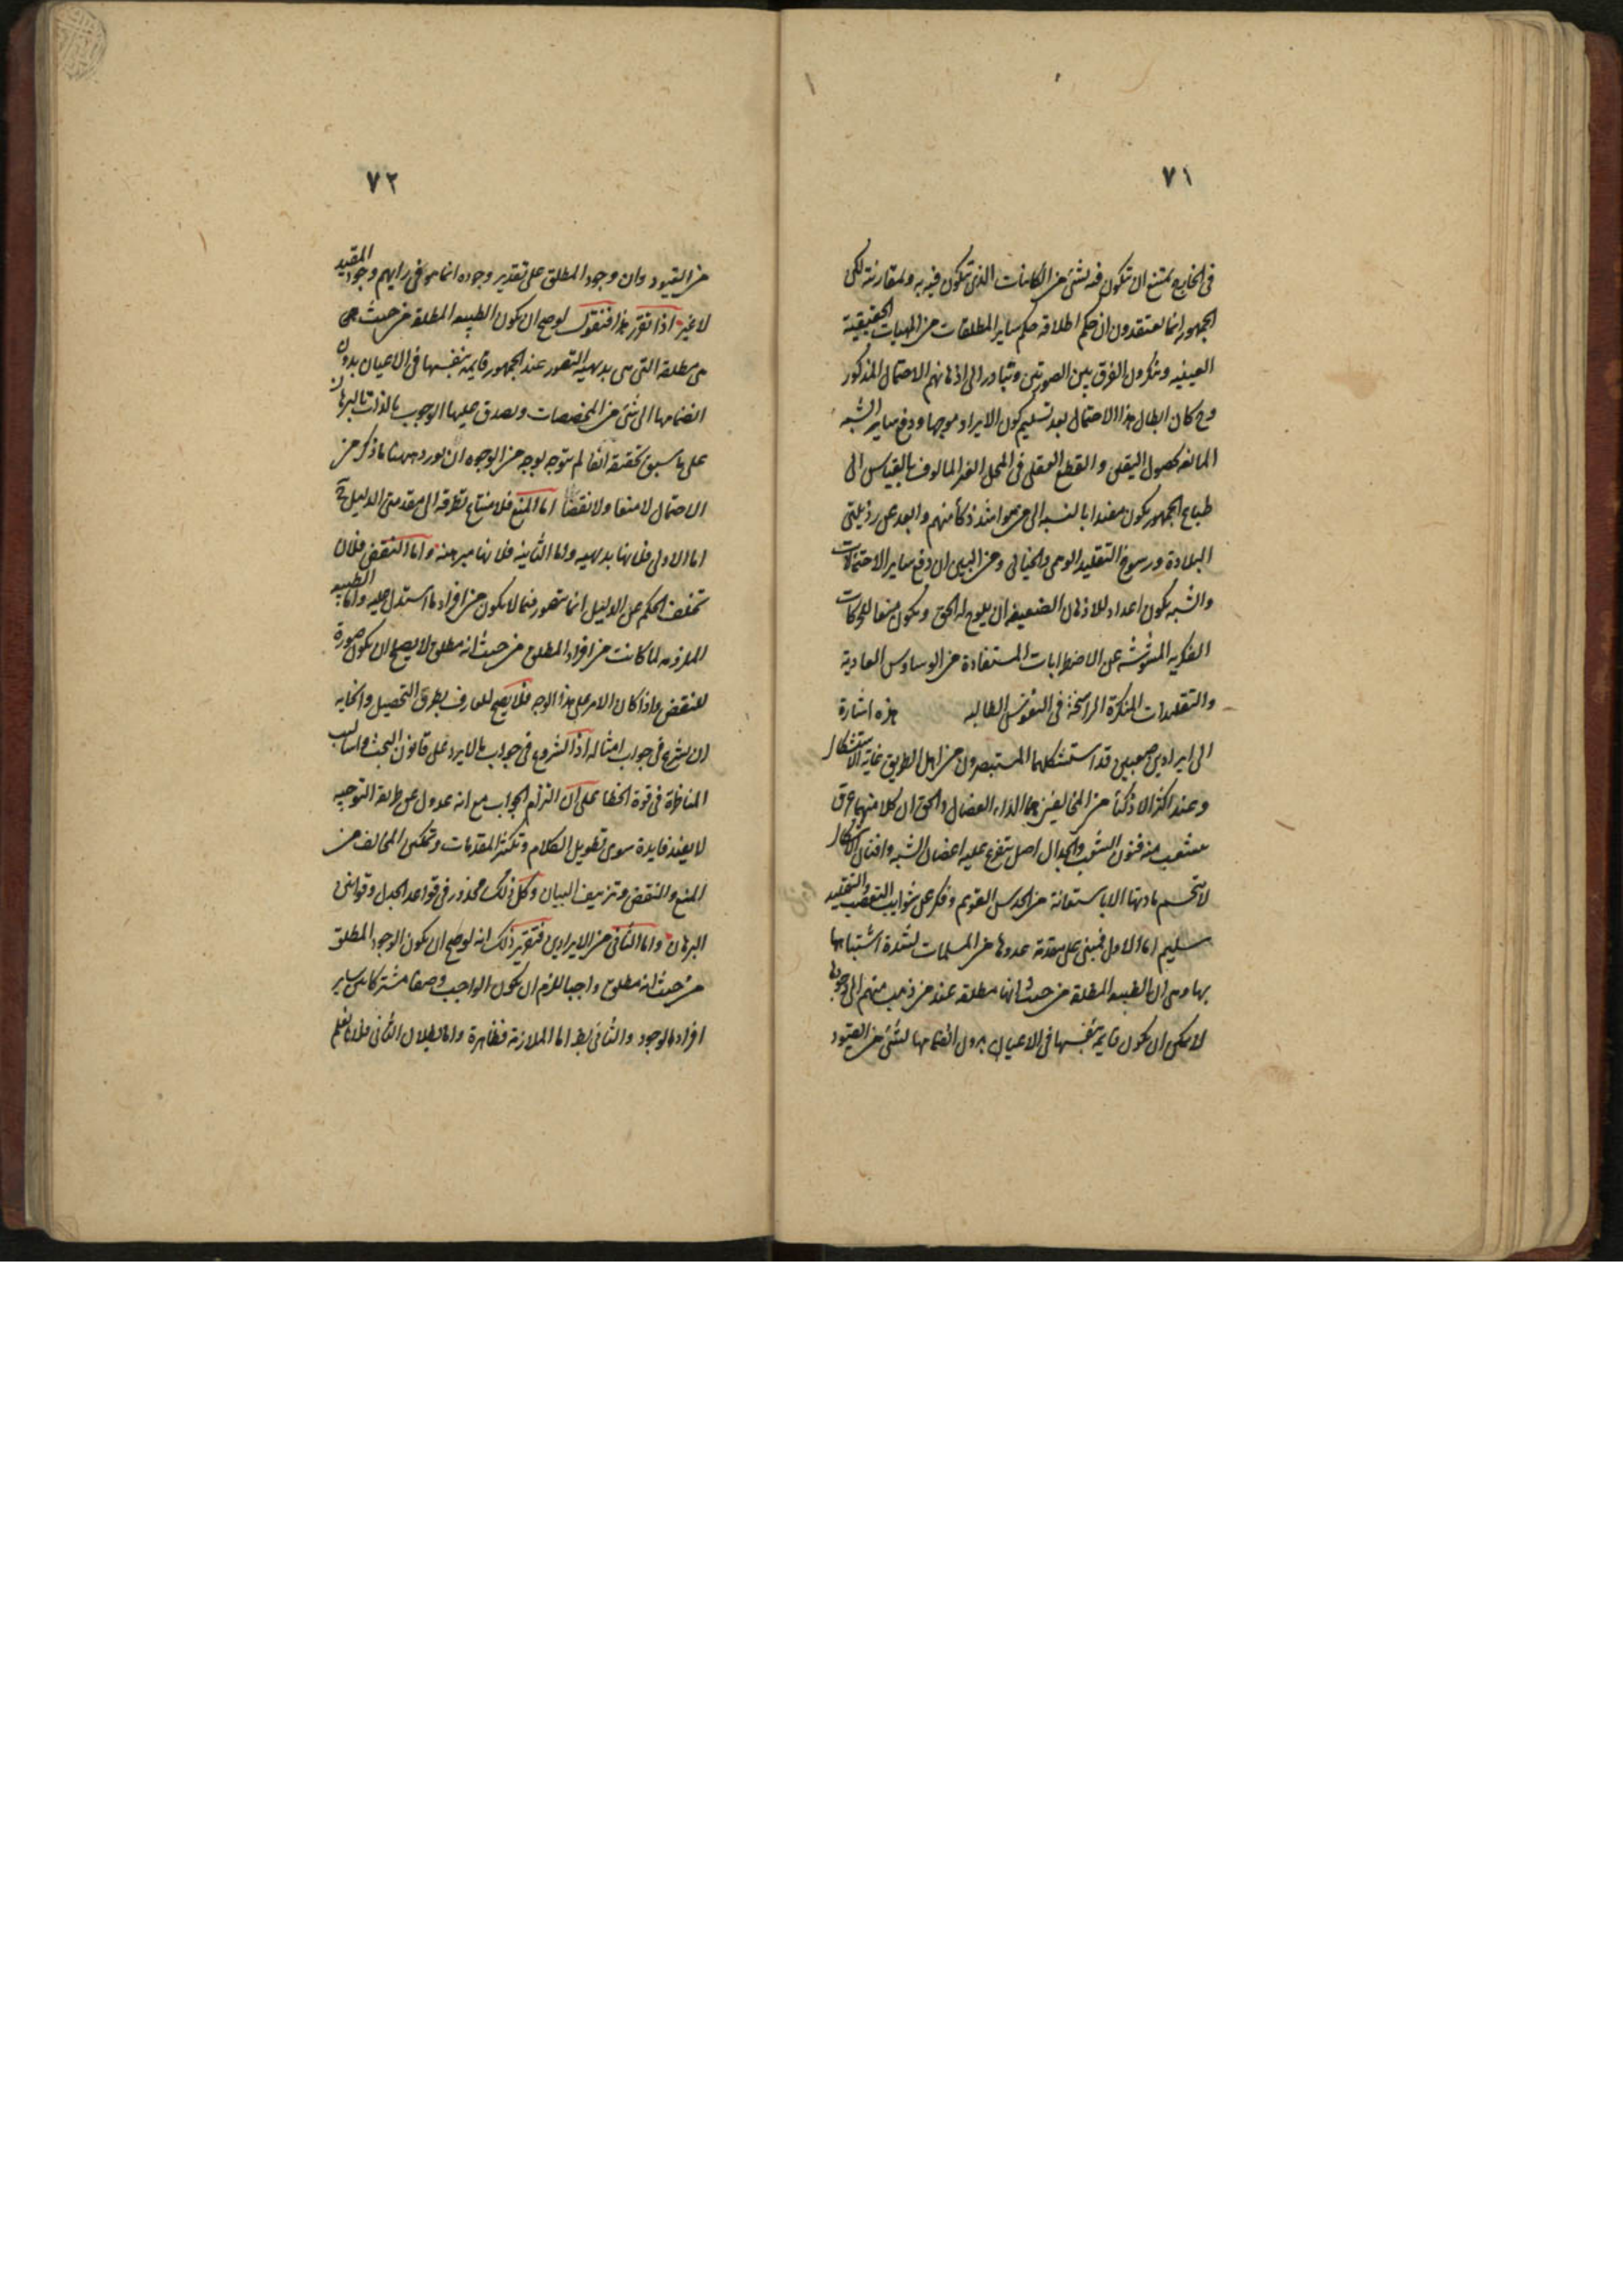 ٧١
في الخارج يمتنع ان تكون فيه لشئ من الكاينات الذي تكون فيه به ولمقارنته لكن
الجمهور انما يعتقدون ان حكم اطلاقه حكم ساير المطلقات من المهيات الحقيقية
العينيه وينكرون الفرق بين الصورتين ويتبادر الى اذهانهم الاحتمال المذكور
وح كان ابطال هذا الاحتمال بعد تسليم كون الايراد موجها ودفع ساير الشبه
المانعه لحصول اليقين والقطع العقلى فى المحل الغير المالوف بالقياس الى
طباع الجمهور يكون مفيدا بالنسبه الى من هو اشد ذكاء منهم وابعد عن رذيلتى
البلادة ورسوخ التقليد الوهمى والخيالى ومن البين ان دفع ساير الاحتمالات
والشبه يكون اعداد للاذهان الضعيفه ان يلوح له الحق ويكون منعا للحركات
الفكريه المشوشه عن الاضطرابات المستفادة من الوساوس العادية
والتقليدات المنكرة الراسخة فى النفوس الطالبه هذه اشارة
الى ايرادين صعبين قد استشكلهما المستبصرون من اهل الطريق غاية الاستشكال
وعند اكثر الاذكيا من المخالفين هما الداء العضال والحق ان كلا منهما عرق
منشعب منه فنون الشعب والجدال اصل يتفرع عليه اغصان الشبه وافنان الاشكال
لا تنحسم مادتها الا باستعانة من الحدس القويم وفكر عن شوايب التعصب والتقليد
سليم اما الاول فمبنى على مقدمة عدوها من المسلمات لشدة اشتباهها
بها وهى ان الطبيعه المطلقة من حيث انها مطلقه عند من ذهب منهم الى وجودها
لا يمكن ان يكون قايمة بنفسها فى الاعيان بدون انضمامها لشئ من القيود
٧٢
من القيود وان وجود المطلق على تقدير وجوده انما هو فى رايهم وجود المقيد
لا غير اذا تقرر هذا فنقول لو صح ان يكون الطبيعه المطلقه من حيث هى
هى مطلقه التى هى بديهية التصور عند الجمهور قايمة بنفسها فى الاعيان بدون
انضمامها الى شئ من المخصصات ويصدق عليها الوجوب بالذات بالبرهان
على ما سبق تحقيقه انفا لم يتوجه بوجه من الوجوه ان يورد ههنا ما ذكر من
الاحتمال لا منعا ولا نقضا اما المنع فلامتناع تطرقه الى مقدمتى الدليل ح
اما الاولى فلانها بديهيه واما الثانيه فلانها مبرهنة واما النقض فلان
تخلف الحكم عن الدليل انما يتصور فيما لا يكون من افراد ما استدل عليه واما الطبيعه
الملزومه لما كانت من افراد المطلق من حيث انه مطلق لا يصح ان يكون صورة
للنقض واذا كان الامر على هذا الوجه فلا يصح للعارف بطرق التحصيل
ان يشرع فى جواب امثاله اذ الشروع فى جواب ما لا يرد على قانون البحث واساليب
المناظرة فى قوة الخطا على ان التزام الجواب مع انه عدول عن طريقة التوجيه
لا يفيد فايدة سوى تطويل الكلام وتكثير المقدمات وتمكين المخالف من
المنع والنقض وتزييف البيان وكل ذلك محذور فى قواعد الجدل وقوانين
البرهان واما الثانى من الايرادين فتقرير ذلك انه لو صح ان يكون الوجود المطلق
من حيث انه مطلق واجبا للزم ان يكون الواجب وصفا مشتركا بين ساير
افراد الوجود والثانى بط اما الملازمة فظاهرة واما بطلان الثانى فلانا نعلم